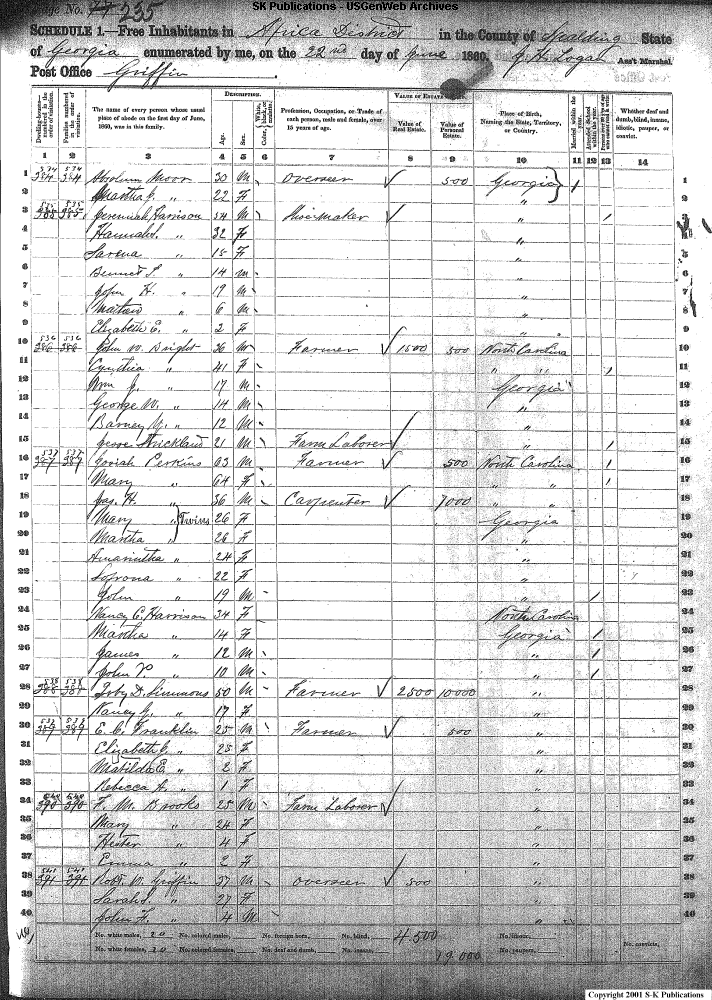 SK Publications - USGenWeb Archives
Page No. 235
SCHEDULE 1.—Free Inhabitants in Africa District in the County of Spalding State
of Georgia enumerated by me, on the 22nd day of June 1860. Logan Ass't Marshal.
Post Office Griffin
Dwelling-houses— numbered in the order of visitation.
Families numbered in order of visitation.
The name of every person whose usual place of abode on the first day of June, 1860, was in this family.
DESCRIPTION.
Age.
Sex.
Color, White, black, or mulatto.
Profession, Occupation, or Trade of each person, male and female, over 15 years of age.
VALUE OF ESTATE
Value of Real Estate.
Value of Personal Estate.
Place of Birth, Naming the State, Territory, or Country.
Married within the year.
Attended School within the year.
Whether deaf and dumb, blind, insane, idiotic, pauper, or convict.
1 2 3 4 5 6 7 8 9 10 11 12 13 14
1 534 384 384 Absolum Moor 30 M Overseer 500 Georgia 1
2 Martha J. " 22 F " 2
3 535 385 385 Jeremiah Harrison 54 M Shoe-maker " 3
4 Hannah " 32 F " 4
5 " 15 F " 5
6 Bennet S. " 14 M " 6
7 John H. " 9 M " 7
8 " 6 M " 8
9 Elizabeth E. " 2 F " 9
10 536 386 386 John W. Dright 36 M Farmer 1500 500 North Carolina 10
11 Cynthia " 41 F " " 11
12 Wm J. " 17 M Georgia 12
13 George W. " 14 M " 13
14 Barney " 12 M " 14
15 Jesse Strickland 21 M Farm Laborer " 15
16 537 387 387 Josiah Perkins 63 M Farmer 500 North Carolina 16
17 Mary " 64 F " " 17
18 Jas. H. " 36 M Carpenter 7000 " " 18
19 Mary " Twins 26 F Georgia 19
20 Martha " 26 F " 20
21 Amarintha " 24 F " 21
22 " 22 F " 22
23 John " 19 M " 23
24 Nancy C. Harrison 34 F North Carolina 24
25 Martha " 14 F Georgia 25
26 James " 12 M " 26
27 John P. " 10 M " 27
28 538 388 388 D. Simmons 50 M Farmer 2500 10000 " 28
29 Nancy " 17 F " 29
30 539 389 389 E. C. Franklin 25 M Farmer 500 " 30
31 Elizabeth " 25 F " 31
32 Matilda E. " 2 F " 32
33 Rebecca A. " 1 F " 33
34 540 390 390 F. M. Brooks 25 M Farm Laborer " 34
35 Mary " 24 F " 35
36 Hester " 4 F " 36
37 Emma " 2 F " 37
38 541 391 391 Robt. W. Griffin 37 M Overseer 500 " 38
39 Sarah " 27 F " 39
40 John F. " 4 M " 40
No. white males, 20 No. colored males, No. foreign born, No. blind, 4.500 No. idiotic, No. convicts,
No. white females, 20 No. colored females, No. deaf and dumb, No. insane, 19.000 No. paupers,
Copyright 2001 S-K Publications